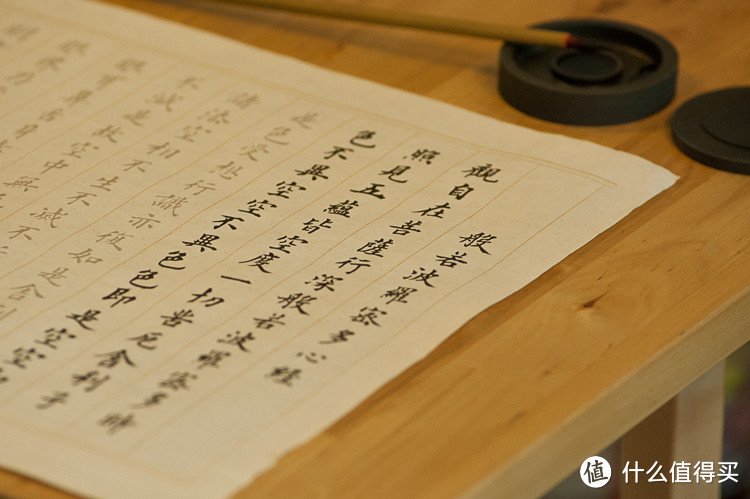 般若波羅密多心經
觀自在菩薩行深般若波羅密多時
照見五蘊皆空度一切苦厄舍利子
色不異空空不異色色即是空空
是色受想行識亦復如是舍利
諸法空相不生不滅不
不減是故空中無
眼耳鼻舌身
值 什么值得买